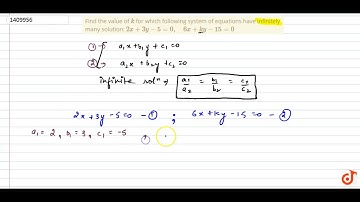 1409956
Find the value of k for which following system of equations have infinitely
many solution: 2x + 3y − 5 = 0, 6x + ky − 15 = 0
① a₁x + b₁y + c₁ = 0
② a₂x + b₂y + c₂ = 0
infinite solⁿ a₁/a₂ = b₁/b₂ = c₁/c₂
2x+3y-5=0 -① ; 6x+ky-15=0 -②
a₁ = 2, b₁ = 3, c₁ = -5 ,